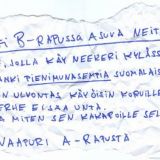 B-RAPUSSA ASUVA NEITI
JOLLA KÄY NEEKERI KYLÄSSÄ
PIENIMUNASEMPIA SUOMALAIS
ULVONTAS KÄVISIKIN KORVILLE
ELSAA UNTA.
MITEN SEN KAKAROILLE SEL
NAAPURI A-RAPUSTA